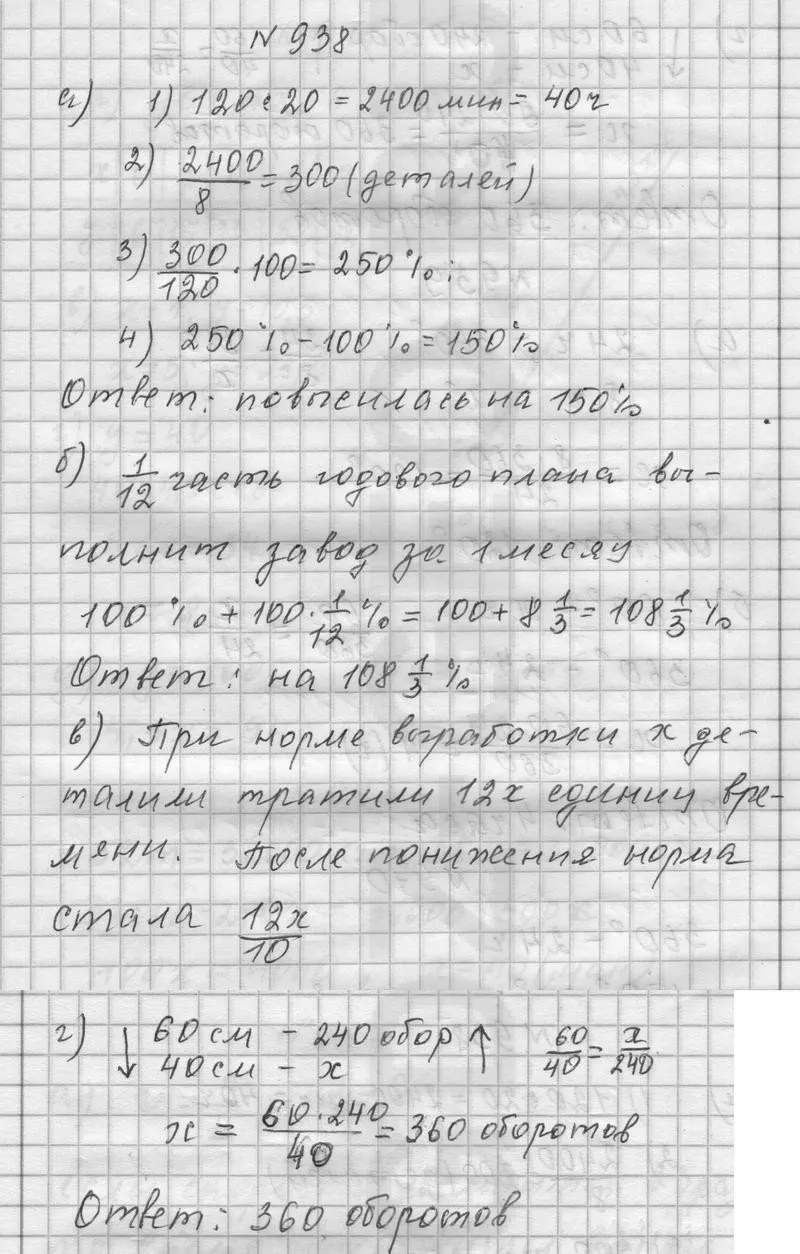 № 938
а) 1) 120 · 20 = 2400 мин = 40 ч
2) 2400/8 = 300 (деталей)
3) 300/120 · 100 = 250 %;
4) 250 % - 100 % = 150 %
Ответ: повысилась на 150 %
б) 1/12 часть годового плана вы-
полнит завод за 1 месяц
100 % + 100 · 1/12 % = 100 + 8 1/3 = 108 1/3 %
Ответ: на 108 1/3 %
в) При норме выработки х де-
талили тратили 12х единиц вре-
мени. После понижения норма
стала 12х/10
г) ↓ 60 см - 240 обор ↑ 60/40 = х/240
40 см - х
х = 60 · 240/40 = 360 оборотов
Ответ: 360 оборотов